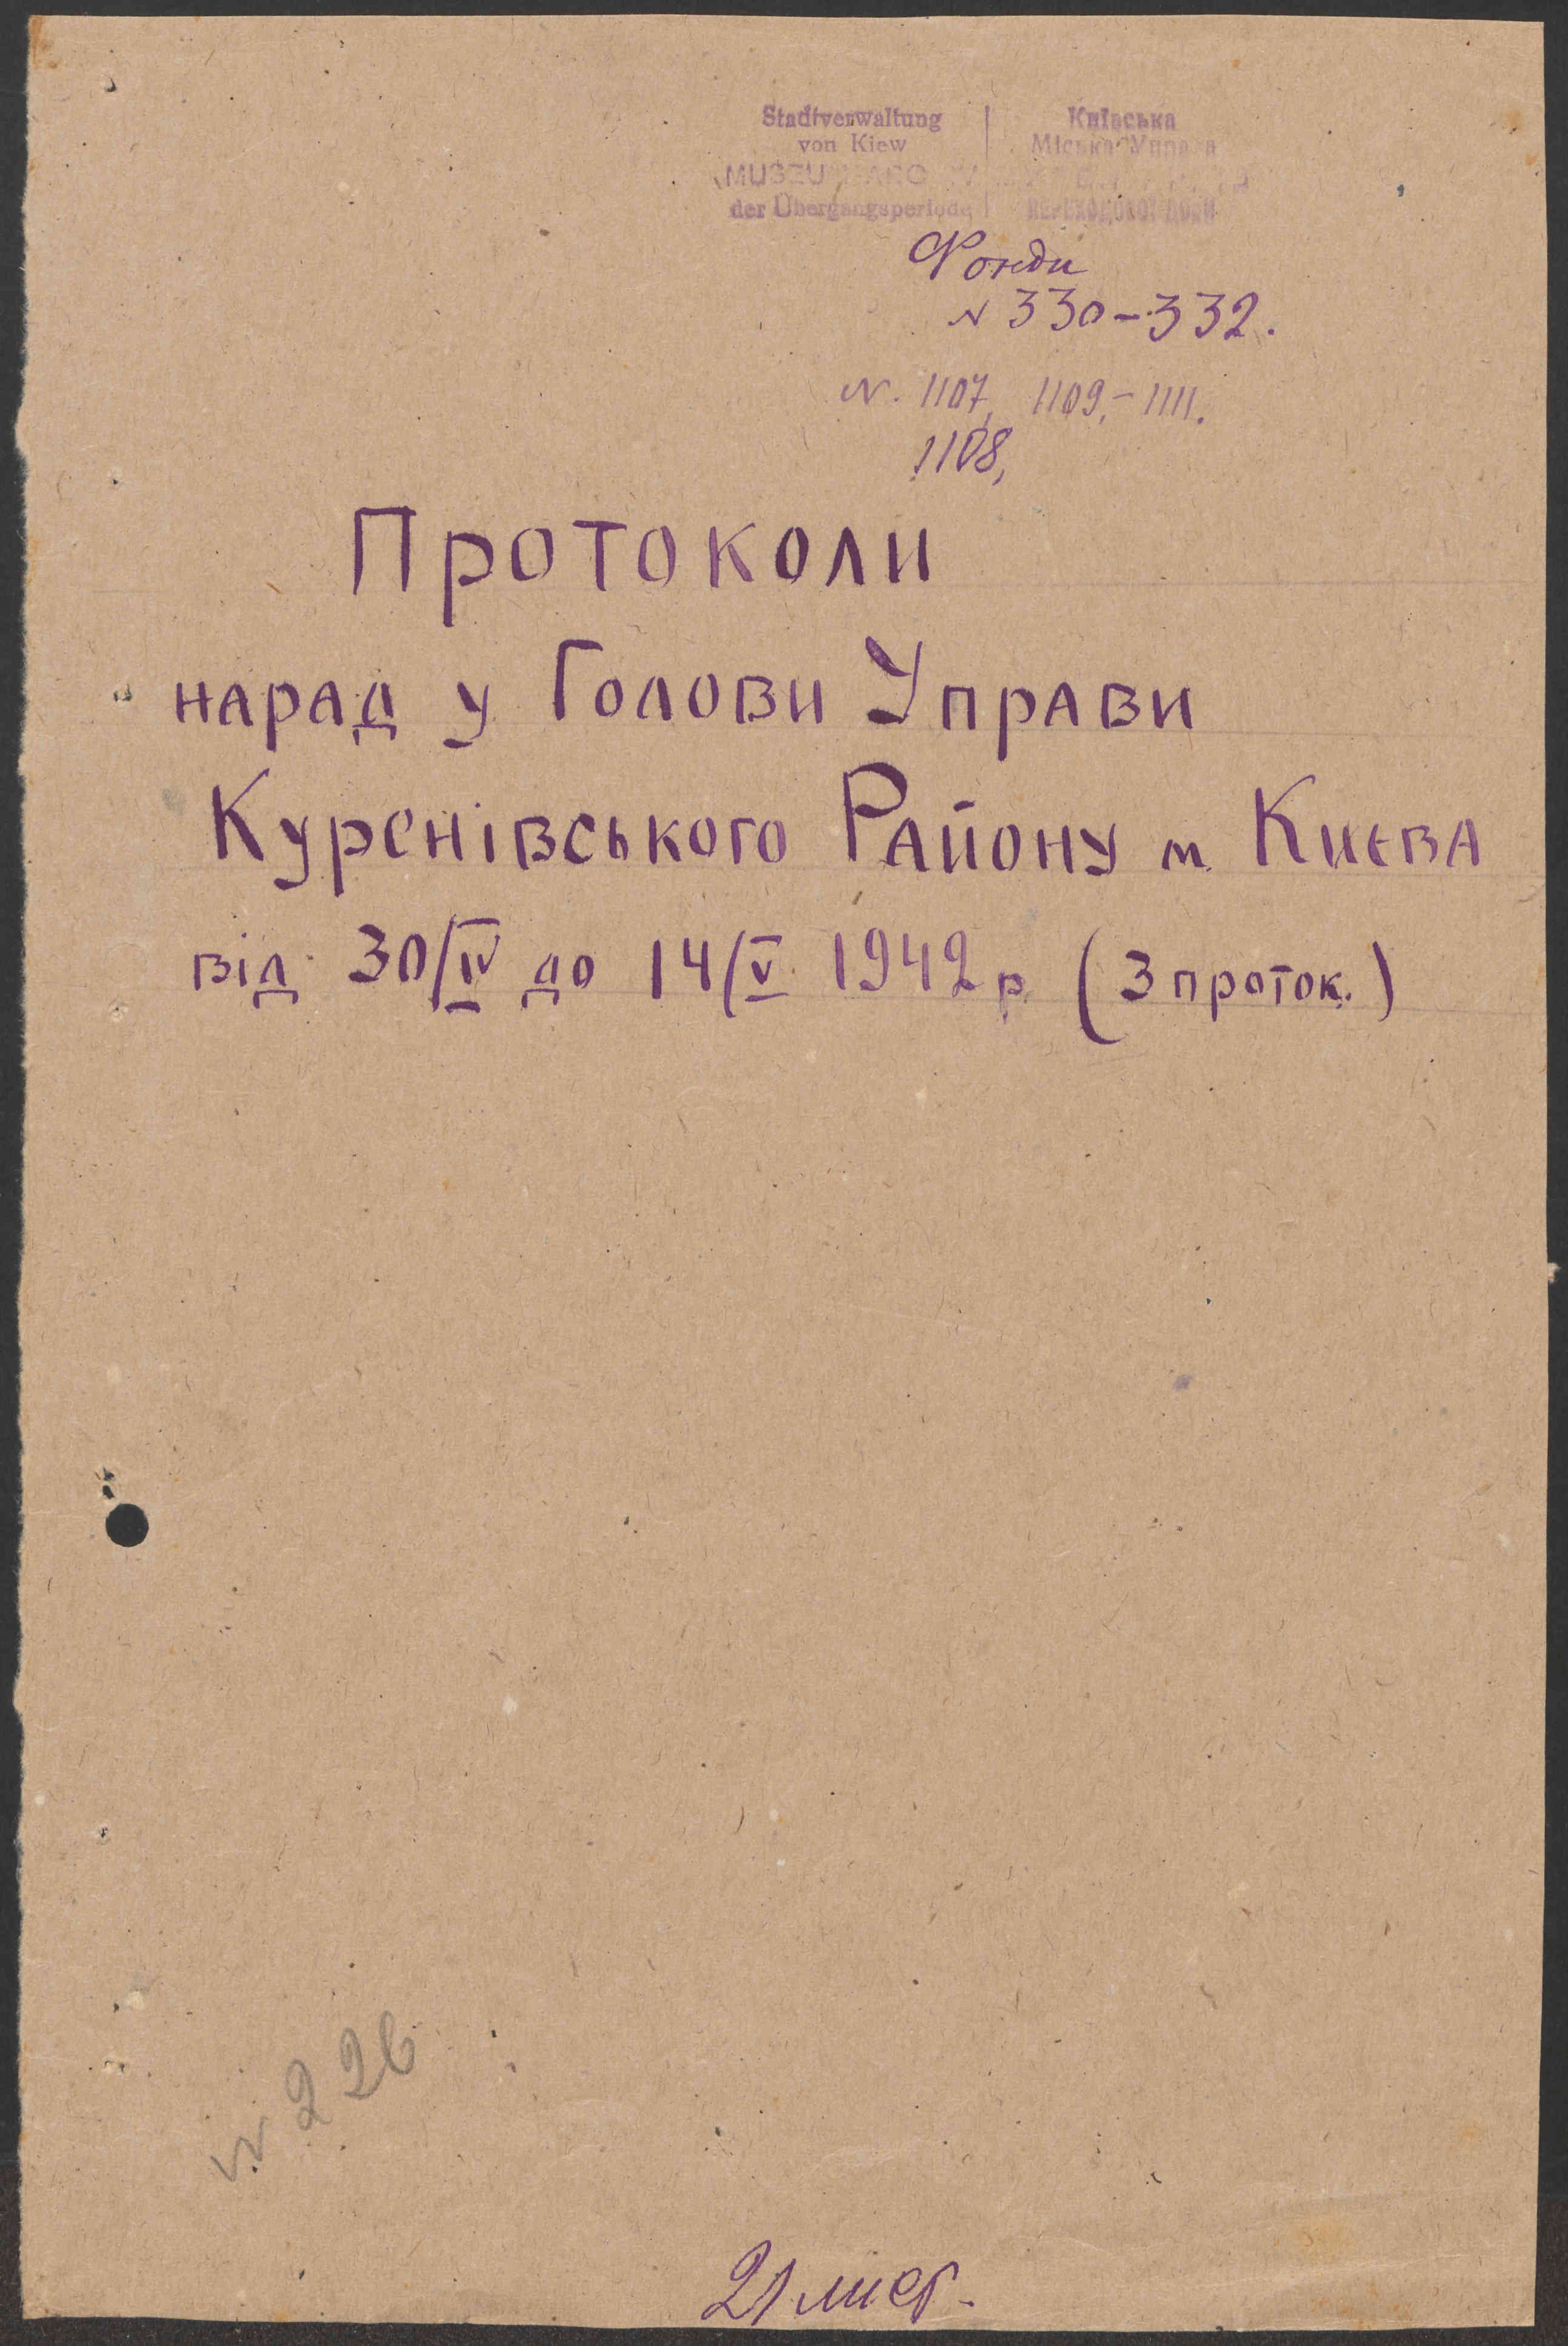 Stadtverwaltung
von Kiew
der Übergangsperiode
Київська
Міська Управа
ПЕРЕХОДОВОЇ ДОБИ
Фонди
№ 330-332.
№. 1107, 1109,- 1111.
1108,
Протоколи
нарад у Голови Управи
Куренівського Району м. Києва
від 30/IV до 14/V 1942 р. (3 проток.)
№ 226
21 лист.